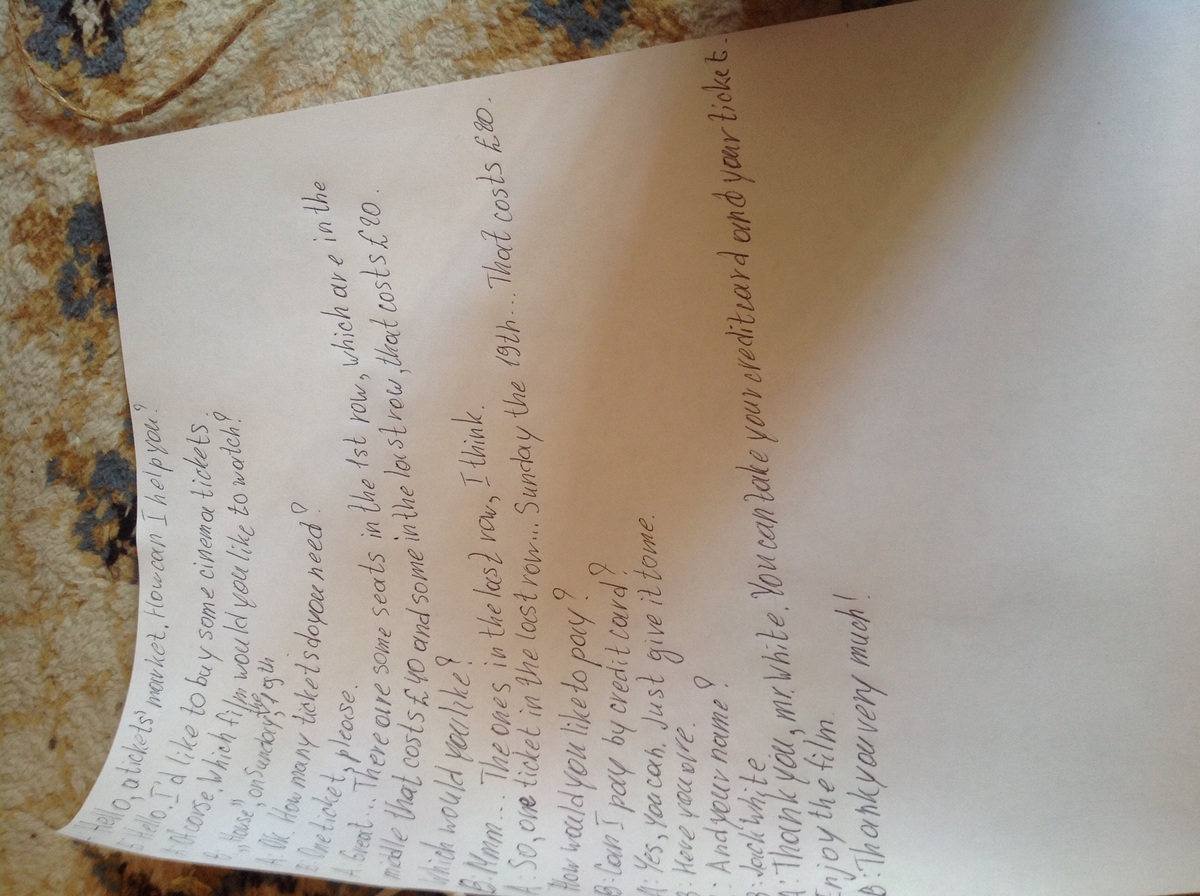 A: Hello, a tickets' market. How can I help you?
B: Hello. I'd like to buy some cinema tickets.
A: Of corse. Which film would you like to watch?
B: „House", on Sunday, the 19th
A: Ok. How many tickets do you need?
B: One ticket, please.
A: Great... There are some seats in the 1st row, which are in the
middle that costs £40 and some in the last row, that costs £20.
Which would you like?
B: Mmm... The ones in the last row, I think.
A: So, one ticket in the last row... Sunday the 19th... That costs £20.
How would you like to pay?
B: Can I pay by credit card?
A: Yes, you can. Just give it to me.
B: Here you are.
A: And your name?
B: Jack White
A: Thank you, mr. White. You can take your credit card and your ticket.
Enjoy the film.
B: Thank you very much!